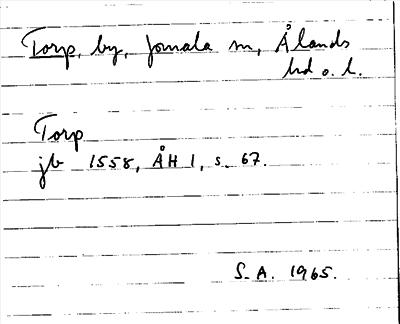 Torp, by, Jomala sn, Ålands
hd o. l.
Torp
jb 1558, ÅH 1, s. 67.
S. A. 1965.